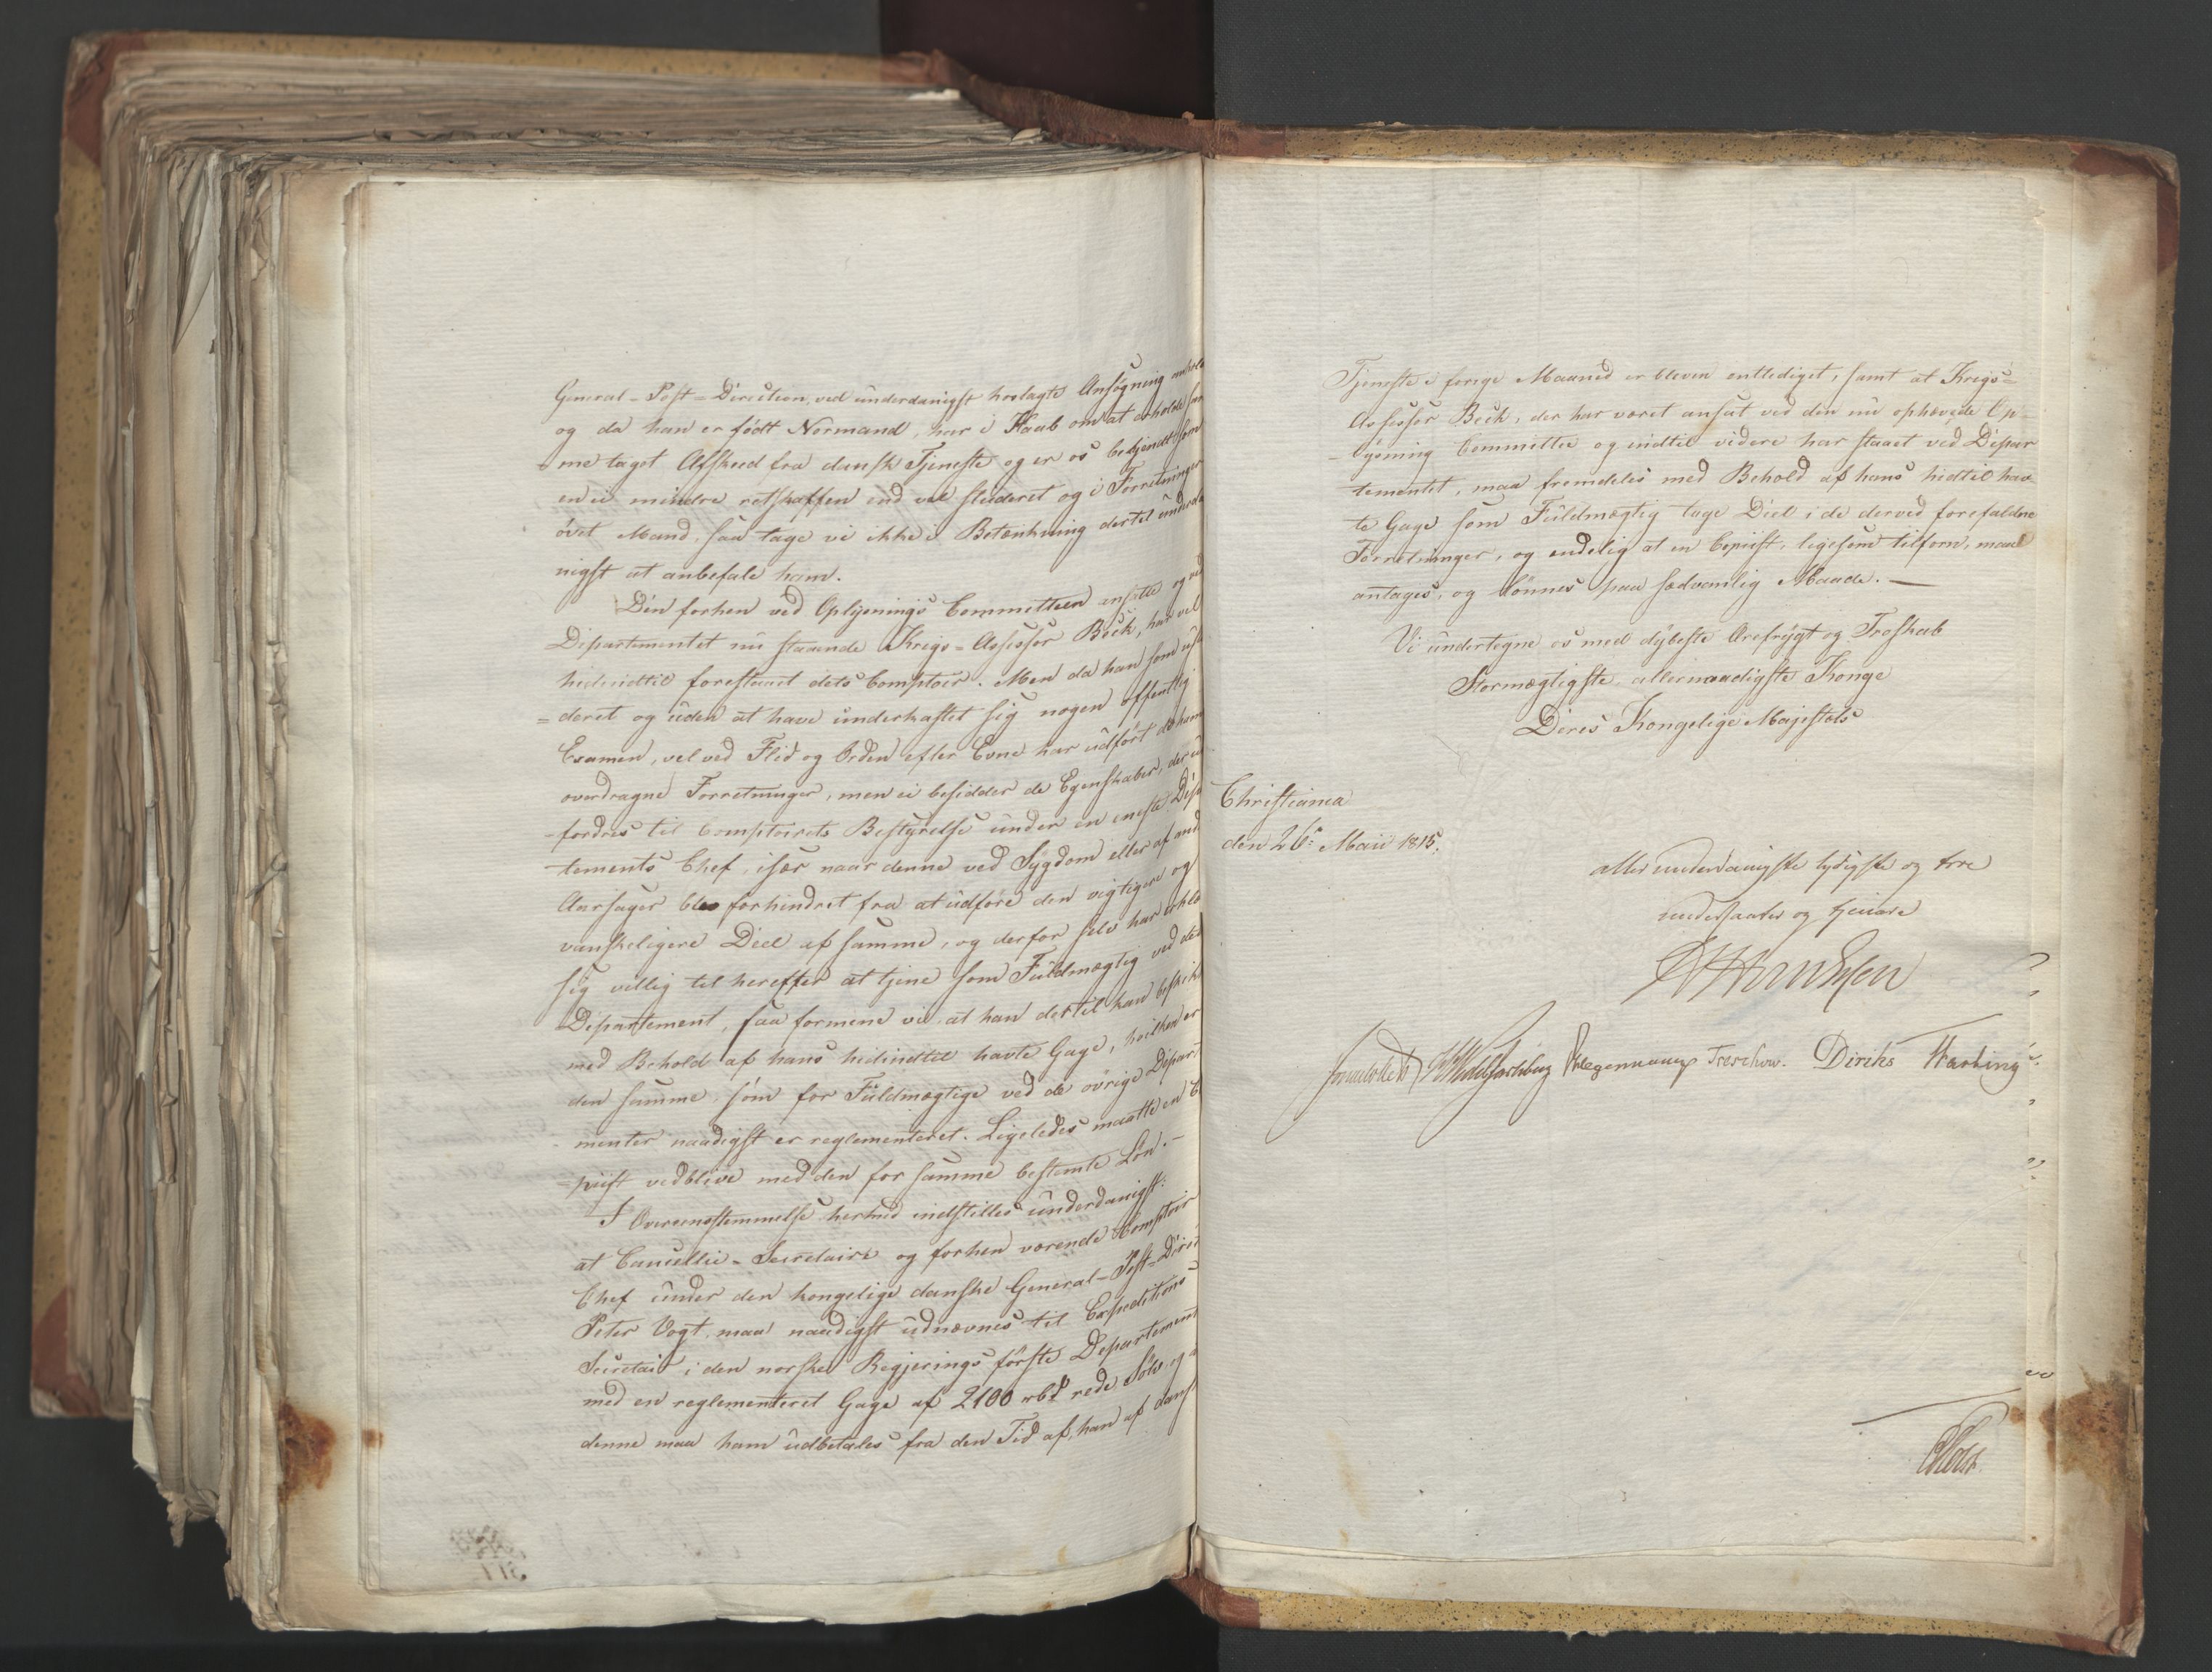 General-Post-Direction, ved underdanigst hoslagte Ansøgning anhold
og da han er født Normand, har i Haab om at erholde sam
me taget Afskeed fra dansk Tjeneste og er os bekjendt som
en ei mindre retskaffen end vel studeret og i Forretninger
øvet Mand, saa tage vi ikke i Betænkning dertil underda
nigst at anbefale ham.
Den forhen ved Oplysnings Committeen ansatte og ved
Departementet nu staaende Krigs-Assessor Beck, har vel
hidindtil forestaaet dets Comptoir. Men da han som ustu
=deret og uden at have underkastet sig nogen offentlig
Examen, vel ved Flid og Orden efter Evne har udført de ham
overdragne Forretninger, men ei besidder de Egenskaber, der ud
-fordres til Comptoirets Bestyrelse under en eneste Depar
tements Chef, især naar denne ved Sygdom eller af andre
Aarsager blev forhindret fra at udføre den vigtigere og
vanskeligere Deel af samme, og derfor selv har erklæ
sig villig til herefter at tjene som Fuldmægtig ved det
Departement, saa formene vi at han dertil kan beskik
med Behold af hans hidindtil havte Gage, hvilken er
den samme, som for Fuldmægtige ved de øvrige Departe
menter naadigst er reglementeret. Ligeledes maatte en Co
-piist vedblive med den for samme bestemte Løn.-
I Overeensstemmelse hermed indstilles underdanigst:
at Cancellie-Secretaire og forhen værende Comptoir
Chef under den kongelige danske General-Post-Direct
Peter Vogt, maa naadigst udnævnes til Expeditions
Secretair i den norske Regjerings første Departement
med en reglementeret Gage af 2100 rbd rede Sølv, og at
denne maa ham udbetales fra den Tid af, han af dansk
Tjeneste i forige Maaned er bleven entlediget, samt at Krigs=
Assessor Beck, der har været ansat ved den nu ophævede Op-
lysning Committee og indtil videre har staaet ved Depar
tementet, maa fremdeles med Behold af hans hidtil hav
te Gage som Fuldmægtig tage Deel i de derved forefaldne
Forretninger, og endelig at en Copiist, ligesom tilforn, maae
antages, og lønnes paa sædvanlig Maade. -
Vi undertegne os med dybeste Ærefrygt og Troskab
Stormægtigste, allernaadigste Konge
Deres Kongelige Majestæts
Christiania
den 26: Maii 1815.
allerunderdanigste lydigste og troe
undersaatter og tjenere
Sommerhielm Wedel Jarlsberg Hegermann Treschow. Diriks Harbing
Holst